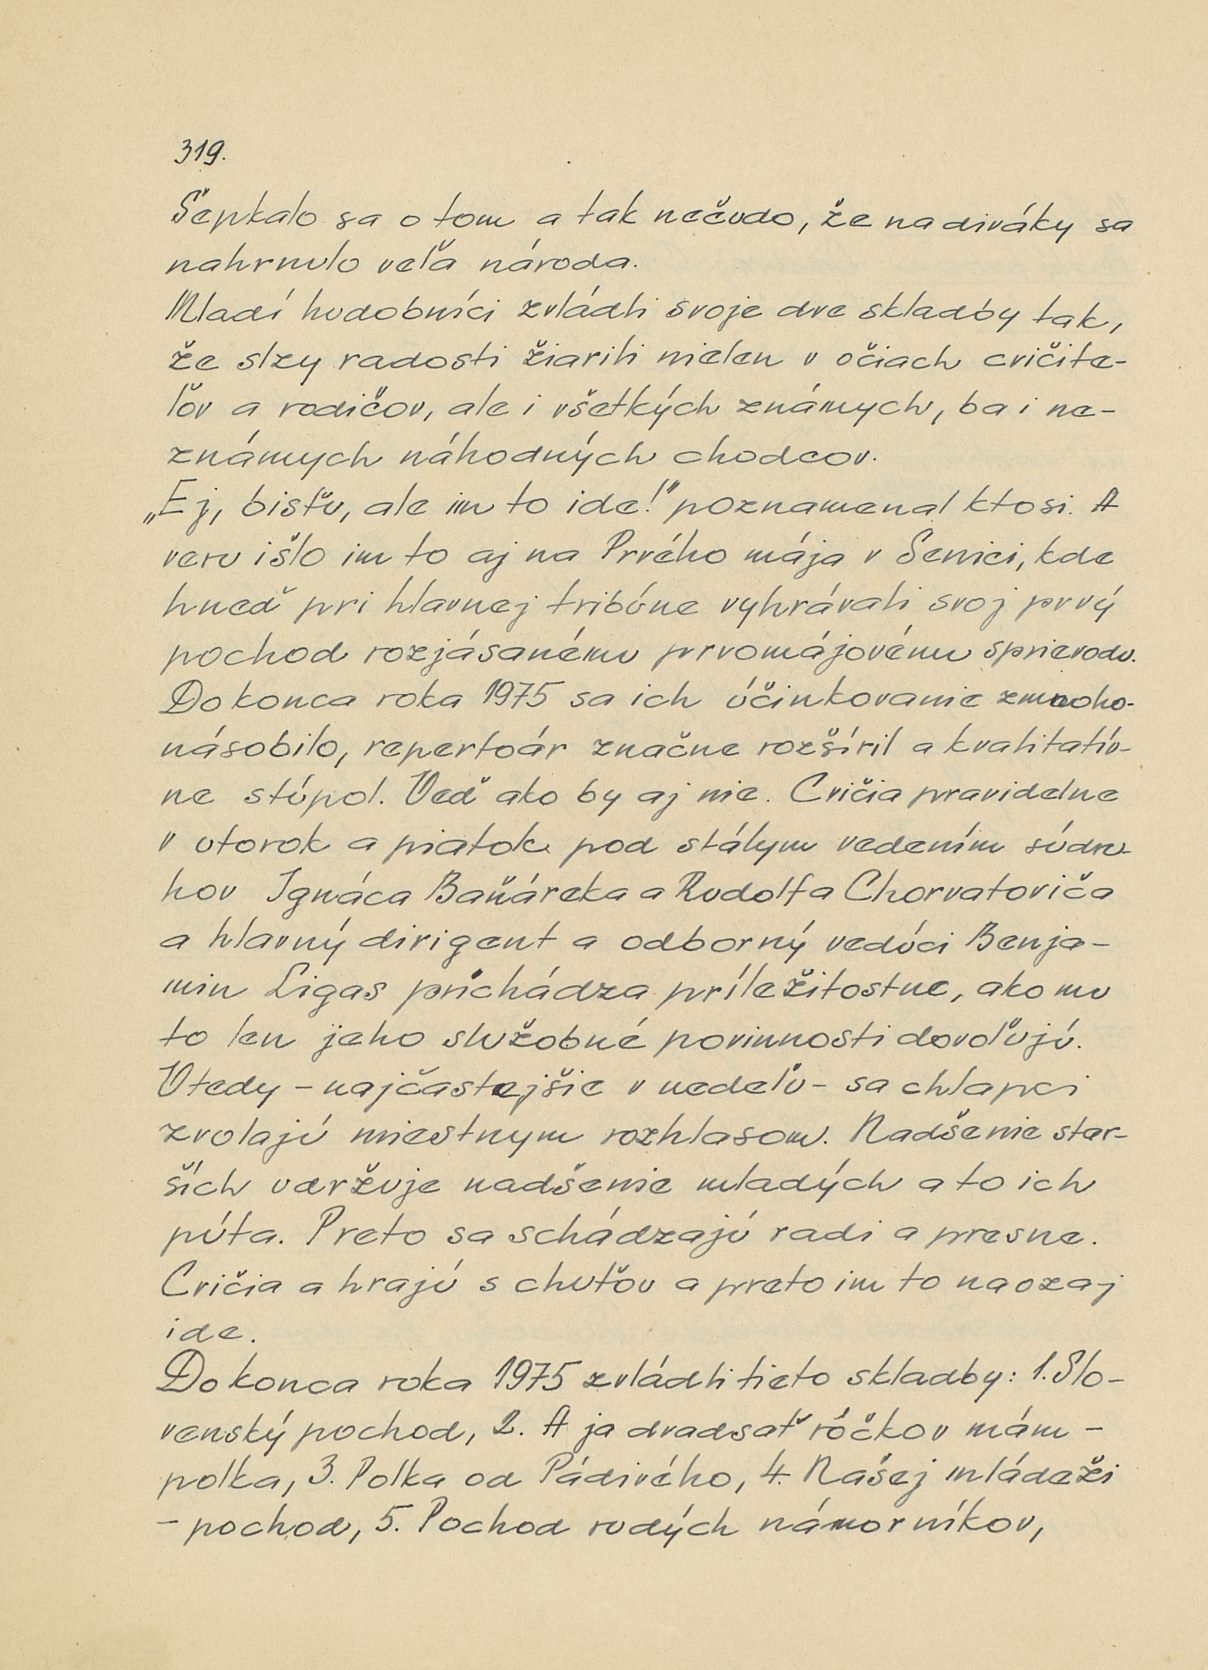 319.
Šepkalo sa o tom a tak nečudo, že na diváky sa
nahrnulo veľa národa.
Mladí hudobníci zvládli svoje dve skladby tak,
že slzy radosti žiarili nielen v očiach cvičite-
ľov a rodičov, ale i všetkých známych, ba i ne-
známych náhodných chodcov.
„Ej, bisťu, ale im to ide!" poznamenal ktosi. A
veru išlo im to aj na Prvého mája v Senici, kde
hneď pri hlavnej tribúne vyhrávali svoj prvý
pochod rozjásanému prvomájovému sprievodu.
Do konca roka 1975 sa ich účinkovanie zmnoho-
násobilo, repertoár značne rozšíril a kvalitatív-
ne stúpol. Veď ako by aj nie. Cvičia pravidelne
v utorok a piatok pod stálym vedením súdru-
hov Ignáca Baňáreka a Rudolfa Chorvatoviča
a hlavný dirigent a odborný vedúci Benja-
min Ligas prichádza príležitostne, ako mu
to len jeho služobné povinnosti dovoľujú.
Vtedy - najčastejšie v nedeľu - sa chlapci
zvolajú miestnym rozhlasom. Nadšenie star-
ších udržuje nadšenie mladých a to ich
púta. Preto sa schádzajú radi a presne.
Cvičia a hrajú s chuťou a preto im to naozaj
ide.
Do konca roka 1975 zvládli tieto skladby: 1. Slo-
venský pochod, 2. A ja dvadsať róčkov mám -
polka, 3. Polka od Pádivého, 4. Našej mládeži
- pochod, 5. Pochod rudých námorníkov,